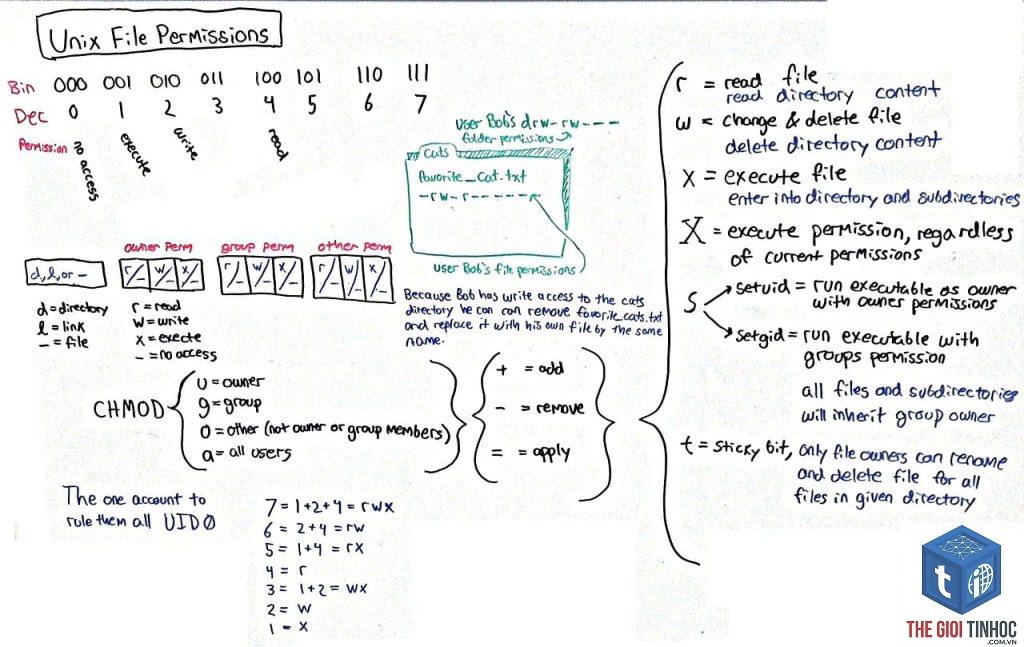 Unix File Permissions
Bin 000 001 010 011 100 101 110 111
Dec 0 1 2 3 4 5 6 7
Permission no access execute write read
user Bob's drw-rw---
folder permissions
Cats
favorite_cat.txt
-rw-r-----
user Bob's file permissions
Because Bob has write access to the cats
directory he can can remove favorite_cats.txt
and replace it with his own file by the same
name.
owner perm group perm other perm
d,l,or - r/- w/- x/- r/- w/- x/- r/- w/- x/-
d=directory
l=link
- = file
r=read
w=write
x=execte
-=no access
CHMOD
u=owner
g=group
o=other (not owner or group members)
a=all users
+ =add
- =remove
= =apply
r = read file
read directory content
w = change & delete file
delete directory content
x = execute file
enter into directory and subdirectories
X = execute permission, regardless
of current permissions
s
setuid = run executable as owner
with owner permissions
setgid = run executable with
groups permission
all files and subdirectories
will inherit group owner
t = sticky bit, only file owners can rename
and delete file for all
files in given directory
The one account to
rule them all UID0
7=1+2+4=rwx
6=2+4=rw
5=1+4=rx
4=r
3=1+2=wx
2=w
1-x
t i
THE GIOI TINHOC
.COM.VN